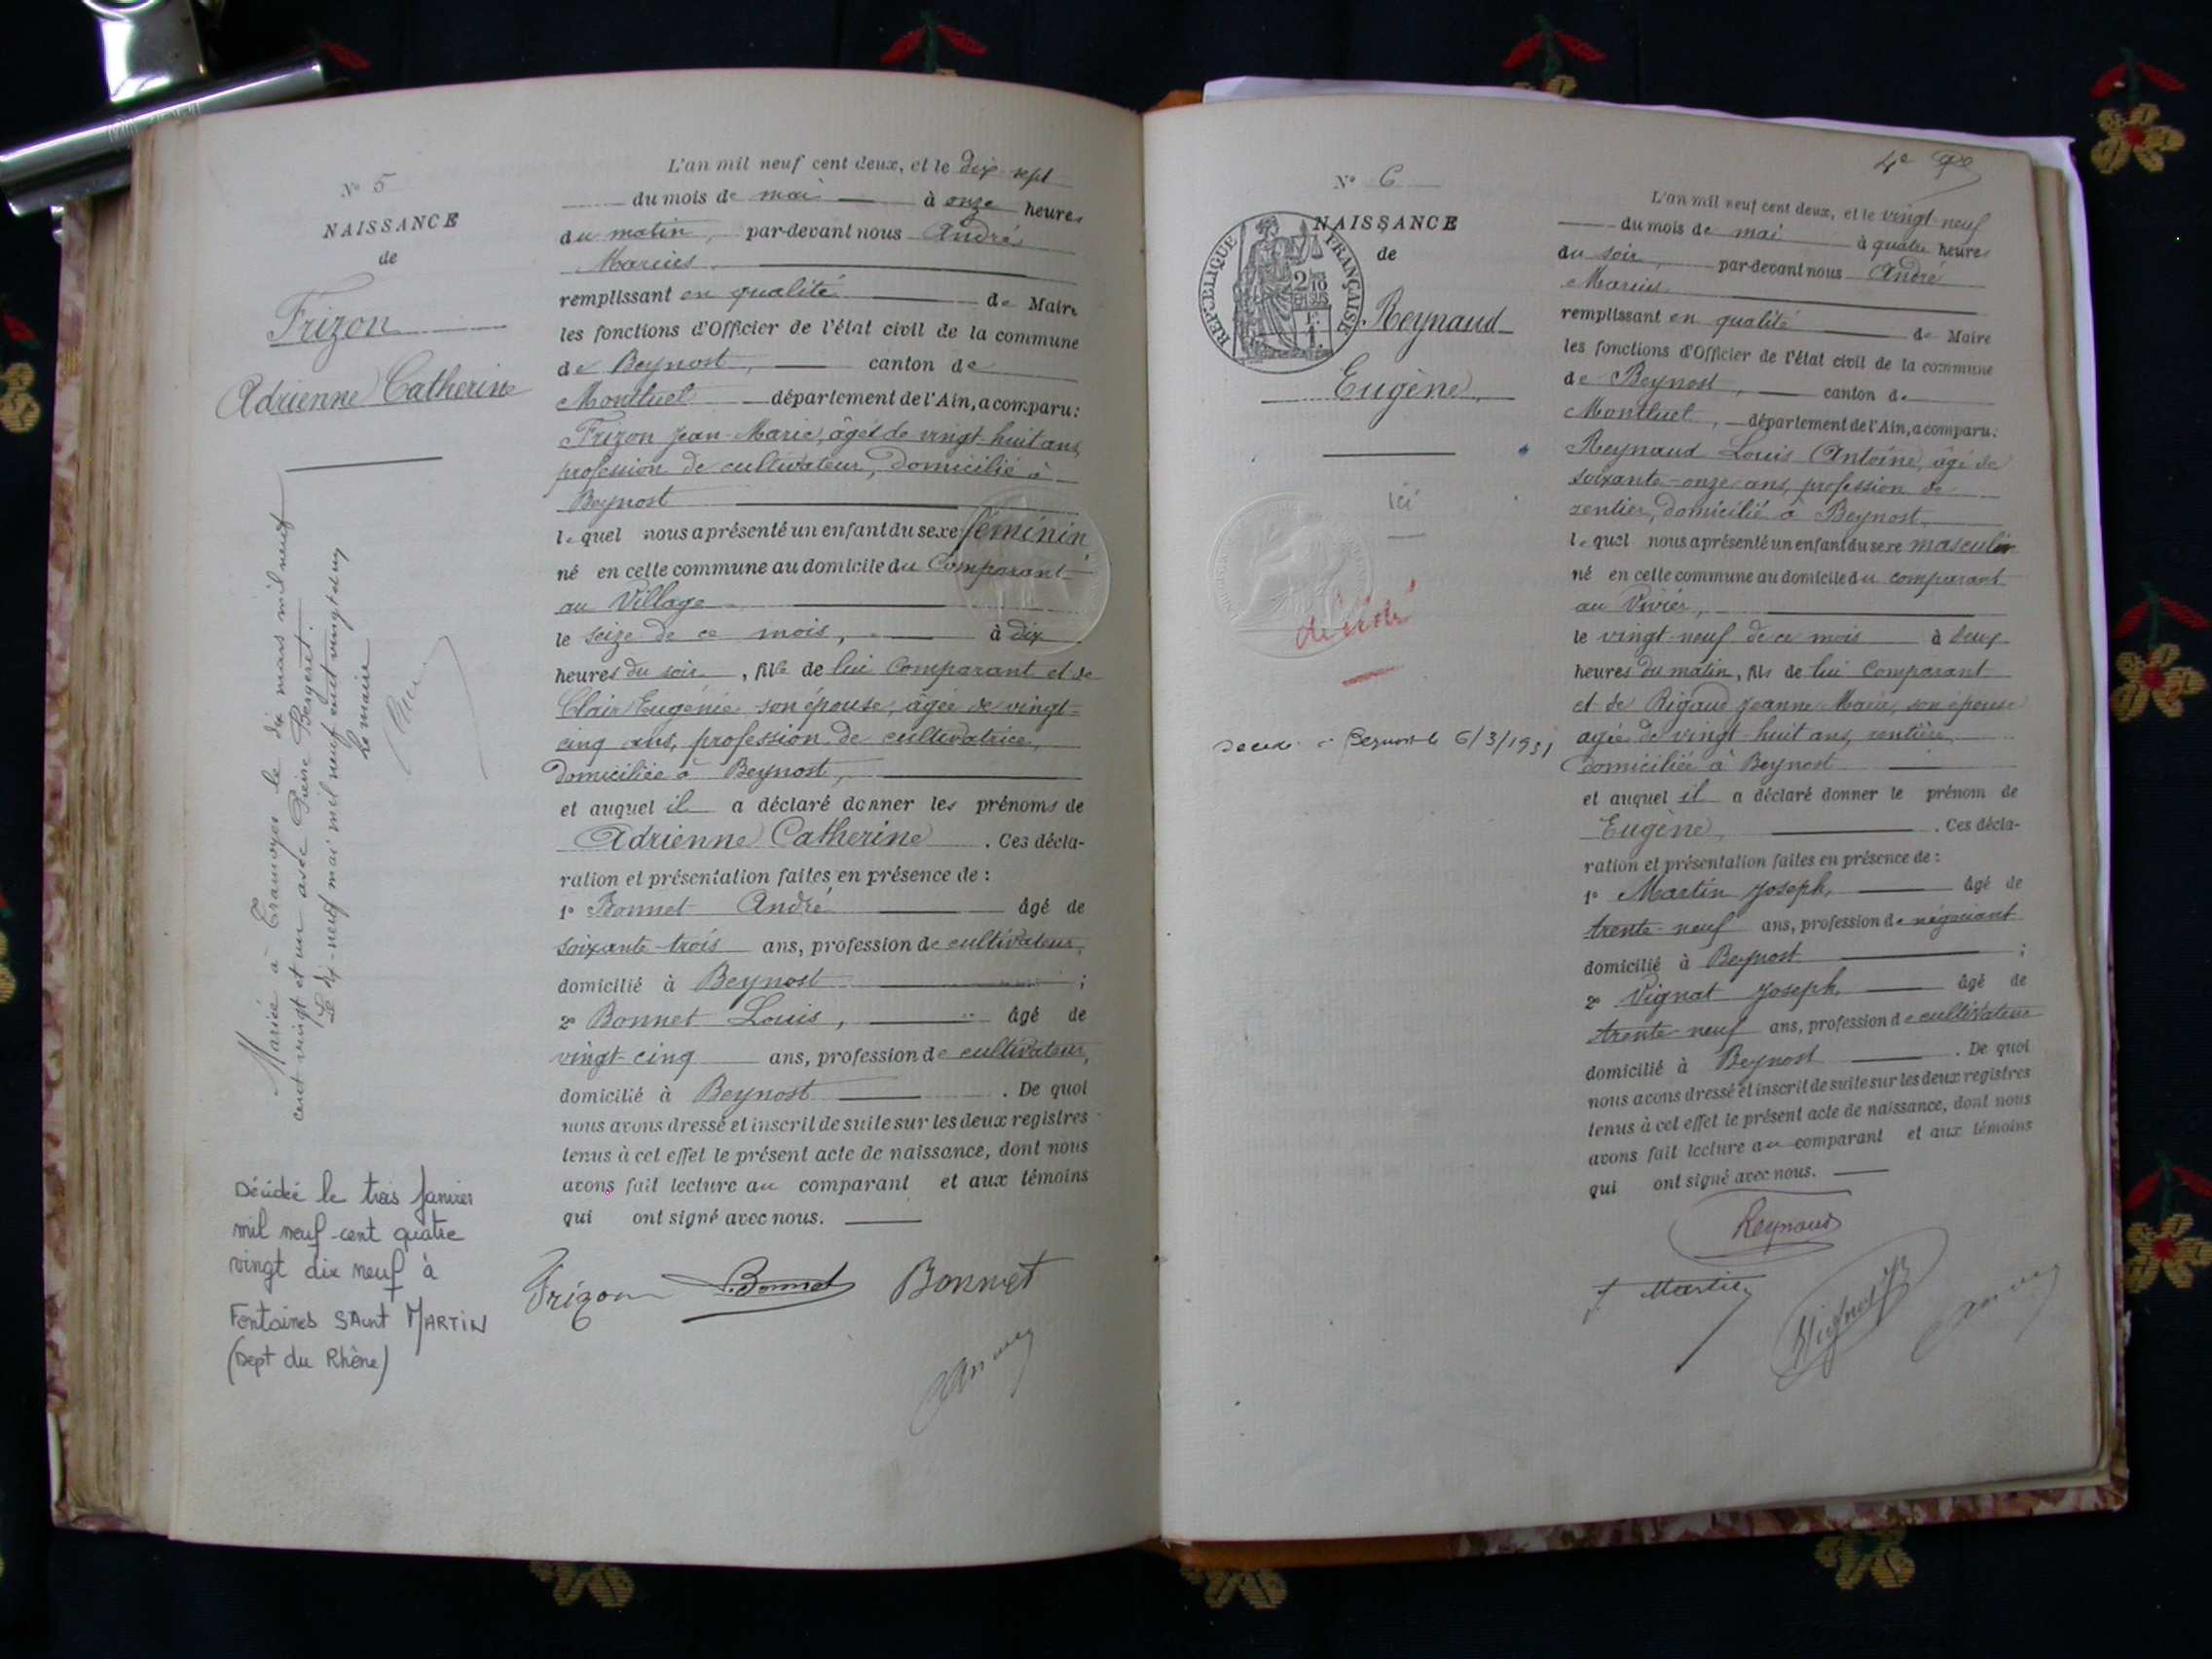 N° 5
NAISSANCE
de
Frizon
Adrienne Catherine
Mariée à Tramoyes le dix mars mil neuf
cent vingt et un avec Pierre Bergeret.
Le dix-neuf mai mil neuf cent vingt et un
Le maire
Décédée le trois Janvier
mil neuf cent quatre
vingt dix neuf à
Fontaines SAint MARTIN
(Dept du Rhône)
L'an mil neuf cent deux, et le dix sept
du mois de mai à onze heures
du matin, par-devant nous André
Marius
remplissant en qualité de Maire
les fonctions d'Officier de l'état civil de la commune
de Beynost, canton de
Montluel département de l'Ain, a comparu:
Frizon Jean-Marie, âgé de vingt-huit ans,
profession de cultivateur, domicilié à
Beynost
lequel nous a présenté un enfant du sexe féminin,
né en cette commune au domicile du Comparant
au Village
le seize de ce mois, à dix
heures du soir, fille de lui Comparant et de
Clair Eugénie son épouse, âgée de vingt-
cinq ans, profession de cultivatrice,
domiciliée à Beynost,
et auquel il a déclaré donner les prénoms de
Adrienne Catherine. Ces décla-
ration et présentation faites en présence de :
1° Bonnet André âgé de
soixante-trois ans, profession de cultivateur,
domicilié à Beynost ;
2° Bonnet Louis, âgé de
vingt-cinq ans, profession de cultivateur,
domicilié à Beynost. De quoi
nous avons dressé et inscrit de suite sur les deux registres
tenus à cet effet le présent acte de naissance, dont nous
avons fait lecture au comparant et aux témoins
qui ont signé avec nous.
Frizon Bonnet Bonnet
4e
N° 6
NAISSANCE
de
REPUBLIQUE FRANÇAISE
Reynaud
Eugène
ici
décédé
Décédé à Beynost le 6/3/1931
L'an mil neuf cent deux, et le vingt-neuf
du mois de mai à quatre heures
du soir, par-devant nous André
Marius
remplissant en qualité de Maire
les fonctions d'Officier de l'état civil de la commune
de Beynost, canton de
Montluel, département de l'Ain, a comparu:
Reynaud Louis Antoine, âgé de
soixante-onze ans, profession de
rentier, domicilié à Beynost
lequel nous a présenté un enfant du sexe masculin
né en cette commune au domicile du comparant
au Vivier,
le vingt-neuf de ce mois à deux
heures du matin, fils de lui Comparant
et de Rigaud Jeanne-Marie, son épouse
agée de vingt-huit ans, rentière
domiciliée à Beynost
et auquel il a déclaré donner le prénom de
Eugène, . Ces décla-
ration et présentation faites en présence de :
1° Martin Joseph, âgé de
trente-neuf ans, profession de négociant
domicilié à Beynost ;
2° Vignat Joseph, âgé de
trente-neuf ans, profession de cultivateur
domicilié à Beynost. De quoi
nous avons dressé et inscrit de suite sur les deux registres
tenus à cet effet le présent acte de naissance, dont nous
avons fait lecture au comparant et aux témoins
qui ont signé avec nous.
Reynaud
J. Martin